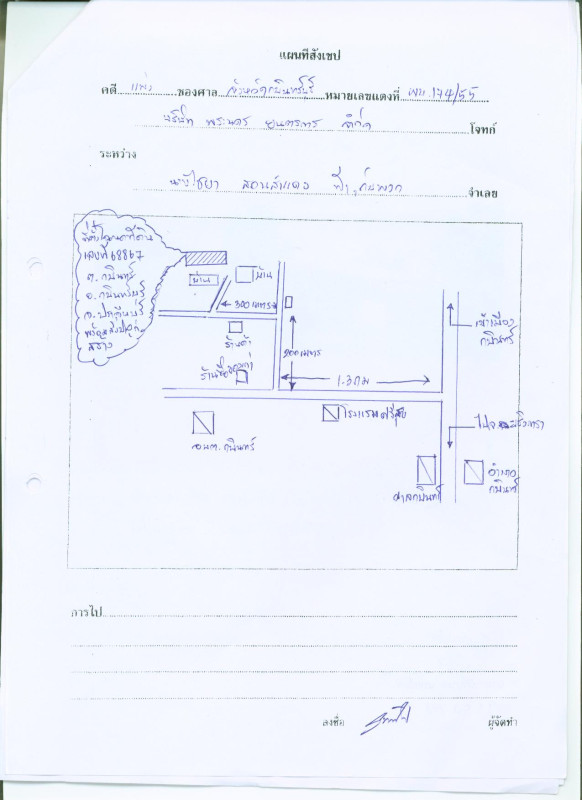 แผนที่สังเขป
คดี แพ่ง ของศาล จังหวัดกบินทร์บุรี หมายเลขแดงที่ ผบ. 174/55
บริษัท พระนคร ยนตรการ จำกัด โจทก์
ระหว่าง
จำเลย
ที่ตั้งโฉนดที่ดิน
เลขที่ 68867
ต. กบินทร์
อ. กบินทร์บุรี
จ. ปราจีนบุรี
พร้อมสิ่งปลูก
สร้าง
บ้าน
บ้าน
300 เมตร
ร้านค้า
200 เมตร
ร้านซื้อของเก่า
1.3 กม
เข้าเมือง
กบินทร์
โรงแรมศรีสุข
อบต. กบินทร์
ไปฉะเชิงเทรา
ศาลกบินทร์
อำเภอ
กบินทร์
การไป
ลงชื่อ ผู้จัดทำ